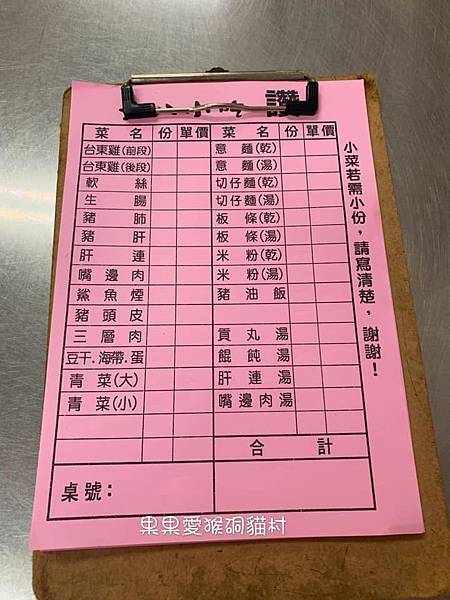 讚
菜名 份 單價 菜名 份 單價
台東雞(前段) 意麵(乾)
台東雞(後段) 意麵(湯)
軟絲 切仔麵(乾)
生腸 切仔麵(湯)
豬肺 板條(乾)
豬肝 板條(湯)
肝連 米粉(乾)
嘴邊肉 米粉(湯)
鯊魚煙 豬油飯
豬頭皮
三層肉 貢丸湯
豆干.海帶.蛋 餛飩湯
青菜(大) 肝連湯
青菜(小) 嘴邊肉湯
合計
桌號：
小菜若需小份，請寫清楚，謝謝！
果果愛猴硐貓村